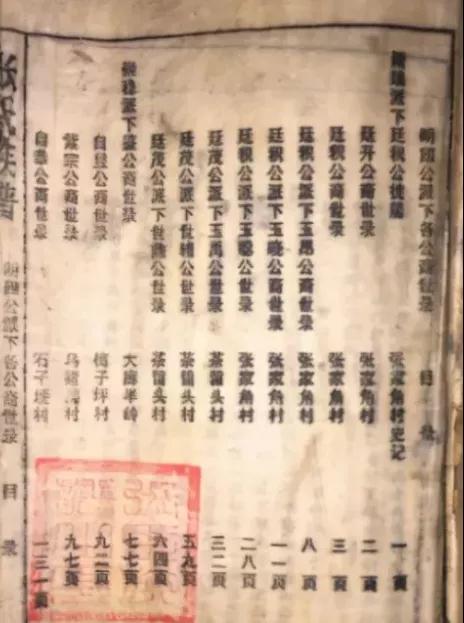 明公派下各公裔世录 目录
派下廷积公 张家角村史记 一頁
廷升公裔世录 张家角村 二頁
廷积公裔世录 张家角村 三頁
廷积公派下玉昂公裔世录 张家角村 八頁
廷积公派下玉晓公裔世录 张家角村 一一頁
廷积公派下玉聪公世录 张家角村 二八頁
廷茂公派下玉禹公裔世录 茶铺头村 三二頁
廷茂公派下世公世录 茶铺头村 五九頁
廷茂公派下世公世录 茶铺头村 六四頁
稳派下公裔世录 大半岭 七七頁
自显公裔世录 子坪村 九二頁
宗公裔世录 乌村 九七頁
自公裔世录 石子村 一三一頁
张氏族谱 明公派下各公裔世录 目录